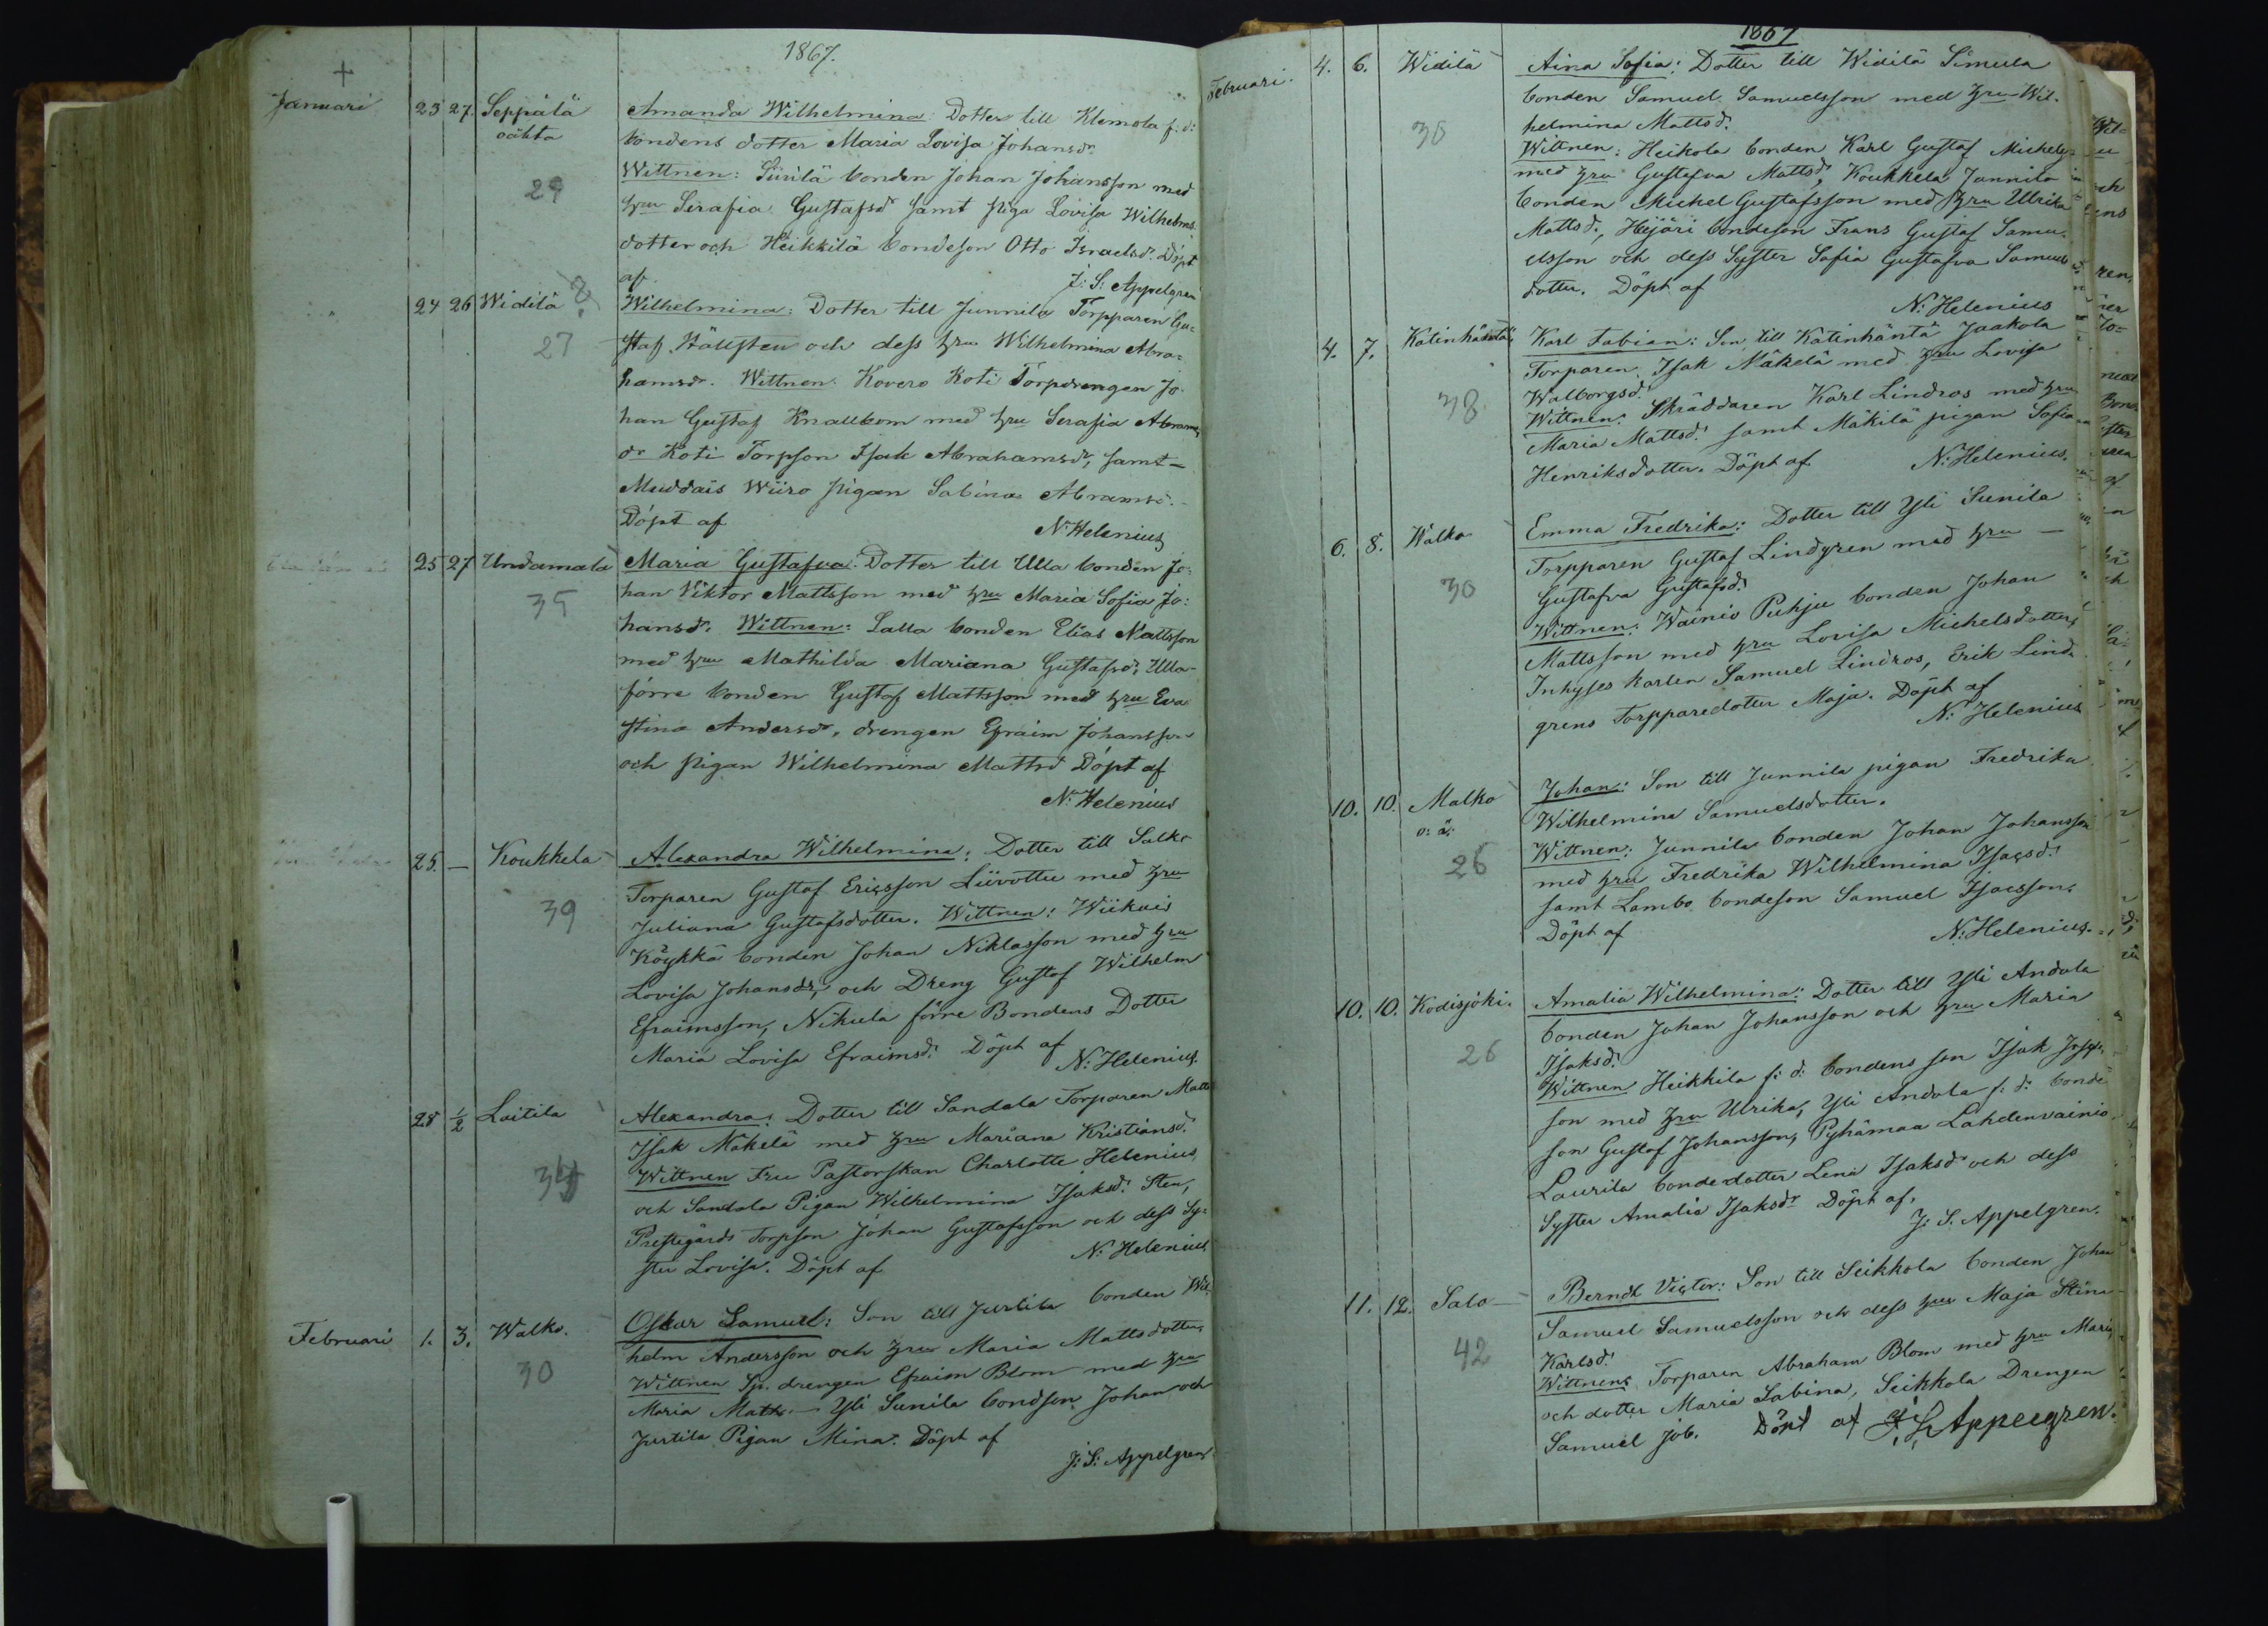 1867.
Januari 23 27. Seppälä Amanda Wilhelmina: Dotter till Klemola f. d.
oäkta bondens dotter Maria Lovisa Johansdr
Wittnen: Siirilä bonden Johan Johansson med
29 hru Serafia Gustafsdr samt piga Lovisa Wilhelms
dotter och Heikkilä bondeson Otto Israelsd. Döpt
af J: S: Appelgren
24 26 Widilä Wilhelmina: Dotter till Junnila Torpparen Gu=
27 staf Hällsten och dess hru Wilhelmina Abra=
hamsdr. Wittnen: Kovero Koti Torpdrengen Jo
han Gustaf Knallbom med hru Serafia Abrams
dr Koti Torpson Isak Abrahamsdr, samt =
Muddais Wiiro pigan Sabina Abramsd.
Döpt af N: Helenius
25 27 Undamala Maria Gustafva: Dotter till Ulla bonden Jo:
35 han Viktor Mattsson med hru Maria Sofia Jo:
hansdr. Wittnen: Lalla bonden Elias Mattsson
med hru Mathilda Mariana Gustafsdr, Ulla
förre bonden Gustaf Mattsson med hru Eva
Stina Andersdr, drengen Efraim Johansson
och pigan Wilhelmina Mattsd Döpt af
N: Helenius
25. — Koukkela Alexandra Wilhelmina: Dotter till Salko
Torparen Gustaf Ericsson Liivottu med hru
39 Juliana Gustafsdotter. Wittnen: Wiikais
Köykkä bonden Johan Niklasson med hru
Lovisa Johansdr, och Dreng Gustaf Wilhelm
Efraimsson, Nikula förre Bondens Dotter
Maria Lovisa Efraimsd: Döpt af N: Helenius
28 1/2 Laitila Alexandra: Dotter till Sandala Torparen Matts
Isak Mäkelä med hru Mariana Kristiansd:
34 Wittnen Fru Pastorskan Charlotte Helenius
och Sandala Pigan Wilhelmina Isaksd: Sten,
Prestegårds Torpson Johan Gustafsson och dess Sy=
ster Lovisa. Döpt af N: Helenius
Februari 1. 3. Walko. Oskar Samuel: Son till Jurtila bonden Wil
30 helm Andersson och hru Maria Mattsdotter
Wittnen Sp. drengen Efraim Blom med hru
Maria Matts. — Yli Sunila bondson Johan och
Jurtila Pigan Mina. Döpt af
J: S: Appelgren
1867
Februari. 4. 6. Widilä Aina Sofia: Dotter till Widilä Simula
bonden Samuel Samuelsson med hru Wil-
30 helmina Mattsd:
Wittnen: Heikola bonden Karl Gustaf Michels
med hru Gustafva Mattsd, Koukkela Junnila
bonden Michel Gustafsson med hru Ulrika
Mattsd., Heijäri bondeson Frans Gustaf Samu
elsson och dess Syster Sofia Gustafva Samuels
dotter. Döpt af
N: Helenius
4. 7. Katinhäntä Karl Fabian: Son till Katinhäntä Jaakola
Torparen Isak Mäkelä med hru Lovisa
38 Walborgsd:
Wittnen: Skräddaren Karl Lindros med hru
Maria Mattsd: samt Mäkilä pigan Sofia
Henriksdotter. Döpt af N: Helenius.
6. 8. Walko Emma Fredrika: Dotter till Yli Sunila
Torpparen Gustaf Lindgren med hru —
30 Gustafva Gustafsd:
Wittnen: Wainio Puhju bonden Johan
Mattsson med hru Lovisa Michelsdotter,
Inhyses karlen Samuel Lindros, Erik Lind
grens Torpparedotter Maja. Döpt af
N: Helenius
10. 10. Malko Johan: Son till Junnila pigan Fredrika
o: ä: Wilhelmina Samuelsdotter.
26 Wittnen: Junnila bonden Johan Johansson
med hru Fredrika Wilhelmina Isacsd:
samt Lambo bondeson Samuel Isacsson.
Döpt af N: Helenius.
10. 10. Kodisjoki. Amalia Wilhelmina: Dotter till Yli Andola
bonden Johan Johansson och hru Maria
26 Isaksd:
Wittnen Heikkila f: d: bondens son Isak Josefs
son med hru Ulrika, Yli Andola f: d: bonde
son Gustaf Johansson, Pyhämaa Lahdenvainio
Laurila bondedotter Lena Isaksd och dess
Syster Amalia Isaksdr Döpt af.
J: S. Appelgren.
11. 12. Salo Berndt Victor: Son till Seikkola bonden Johan
Samuel Samuelsson och dess hru Maja Stina
42 Karlsd:
Wittnen: Torparen Abraham Blom med hru Maria
och dotter Maria Sabina, Seikkola Drengen
Samuel Job. Döpt af J: S. Appelgren.